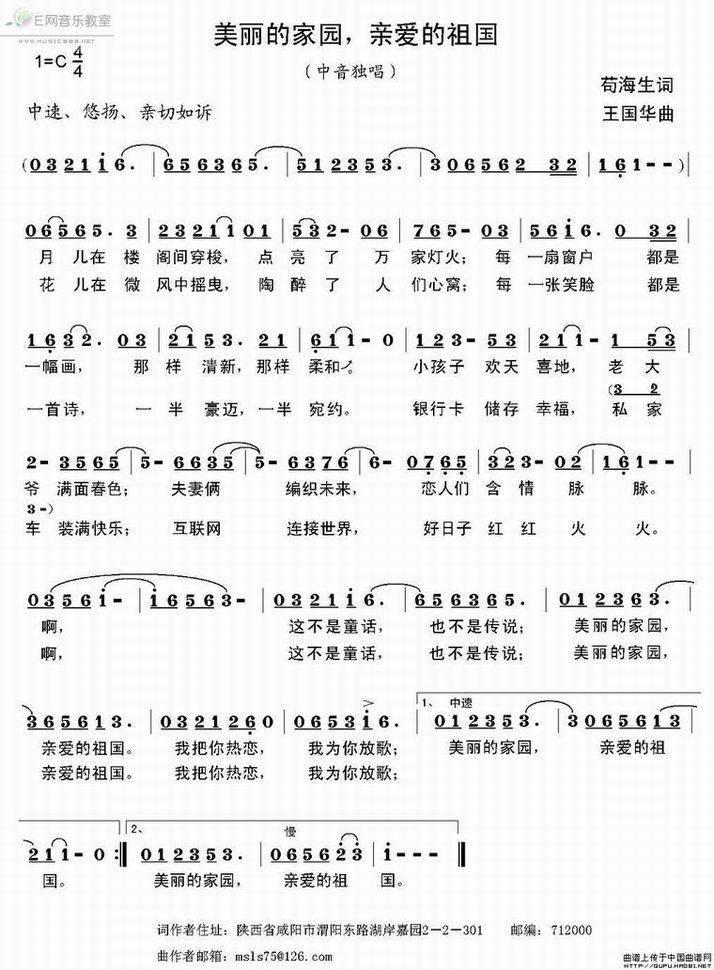 E网音乐教室
美丽的家园，亲爱的祖国
（中音独唱）
1=C 4/4
苟海生词
中速、悠扬、亲切如诉
王国华曲
(0 3 2 1 i 6. | 6 5 6 3 6 5. | 5 1 2 3 5 3. | 3 0 6 5 6 2 3 2 | 1 6 1 - -)|
0 6 5 6 5. 3 | 2 3 2 1 1 0 1 | 5 3 2 - 0 6 | 7 6 5 - 0 3 | 5 6 i 6. 0 3 2 |
月儿在楼 阁间穿梭， 点亮了 万家灯火；每一扇窗户 都是
花儿在微 风中摇曳， 陶醉了 人们心窝；每一张笑脸 都是
1 6 3 2. 0 3 | 2 1 5 3. 2 1 | 6 1 1 - 0 | 1 2 3 - 5 3 | 2 2 1 - 1 5 3 |
一幅画， 那样清新，那样柔和。 小孩子 欢天喜地，老大
(3 2
一首诗， 一半豪迈，一半宛约。 银行卡 储存幸福，私家
2 - 3 5 6 5 | 5 - 6 6 3 5 | 5 - 6 3 7 6 | 6 - 0 7 6 5 | 3 2 3 - 0 2 | 1 6 1 - |
爷 满面春色； 夫妻俩 编织未来， 恋人们 含情脉脉。
3 -)
车 装满快乐； 互联网 连接世界， 好日子 红红火火。
0 3 5 6 i - | i 6 5 6 3 - | 0 3 2 1 i 6. | 6 5 6 3 6 5. | 0 1 2 3 6 3. |
啊， 这不是童话， 也不是传说； 美丽的家园，
啊， 这不是童话， 也不是传说； 美丽的家园，
3 6 5 6 1 3. | 0 3 2 1 2 6 0 | 0 6 5 3 i 6. | 1、中速 0 1 2 3 5 3. | 3 0 6 5 6 1 3 |
亲爱的祖国。 我把你热恋， 我为你放歌； 美丽的家园， 亲爱的祖
亲爱的祖国。 我把你热恋， 我为你放歌；
2 1 1 - 0 :| 2、 0 1 2 3 5 3. | 慢 0 6 5 6 2 3 | i - - - |
国。 美丽的家园， 亲爱的祖国。
词作者住址：陕西省咸阳市渭阳东路湖岸嘉园2－2－301 邮编：712000
曲作者邮箱：msls75@126.com
曲谱上传于中国曲谱网